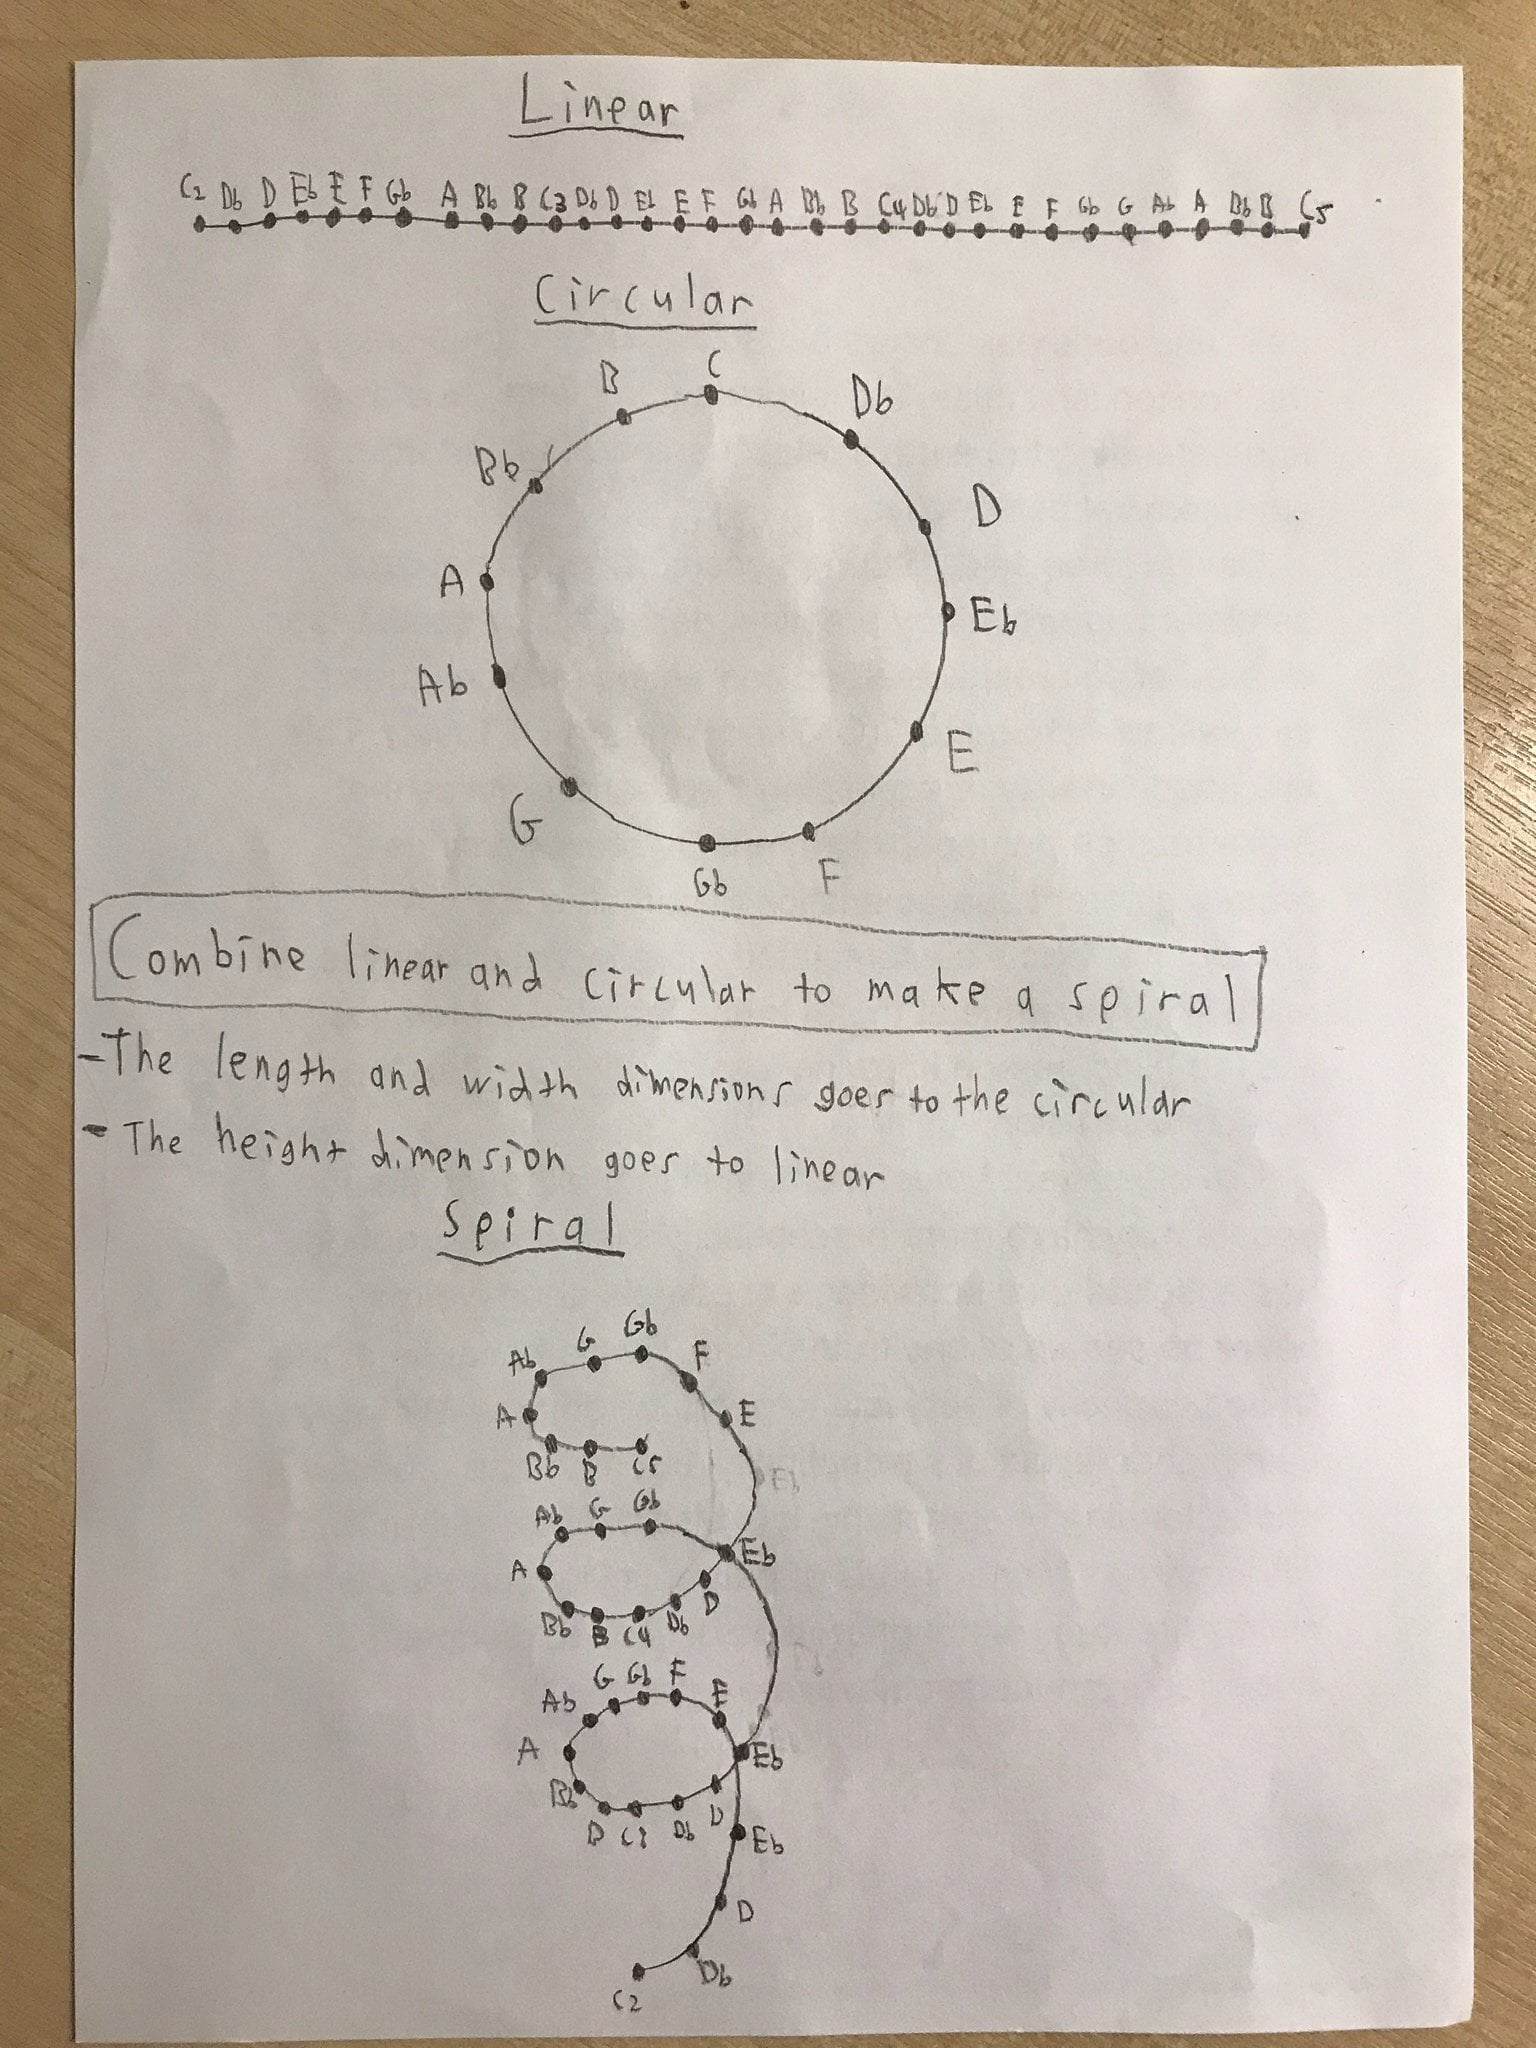 Linear
C2 Db D Eb E F Gb A Bb B C3 Db D Eb E F Gb A Bb B C4 Db D Eb E F Gb G Ab A Bb B C5
Circular
C
B
Db
Bb
D
A
Eb
Ab
E
G
F
Gb
Combine linear and circular to make a spiral
-The length and width dimensions goes to the circular
- The height dimension goes to linear
Spiral
Ab G Gb F
A E
Bb B C5
Eb
Ab G Gb
A Eb
Bb B C4 Db D
Ab G Gb F E
A Eb
Bb B C3 Db D
Eb
D
Db
C2